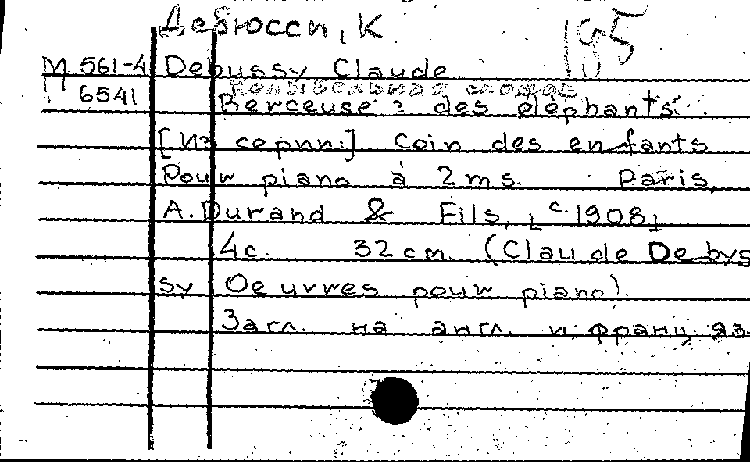 Дебюсси, К
195
М 561-4 Debussy Claude
Колыбельная слонов
6541 Berceuse : des elephants.
[Из серии:] Coin des enfants
Pour piano à 2 ms. Paris,
A. Durand & Fils, [c 1908]
4c. 32 cm. (Claude Debus
sy Oeuvres pour piano)
Загл. на англ. и франц. яз.